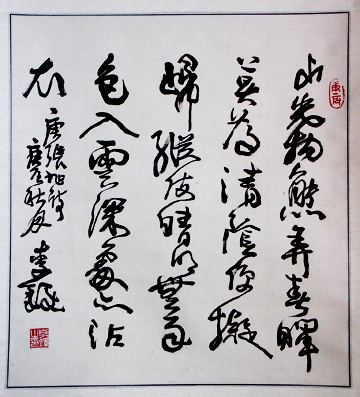 山光物態弄春暉
莫為清蔭便擬
歸縱使晴明無雨
色入雲深處亦沾
衣
唐張旭詩
秋月
李